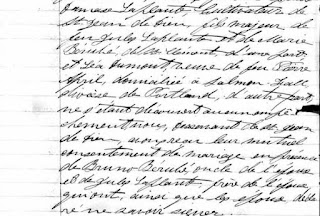 Laplante cultivateur de
St Jean de Dieu, fils majeur de
feu Jules Laplante et de Marie
Bérubé de St Clément d'une part,
et Léa Dumont, veuve de feu Pierre
April, domiciliée à Salmon Fall
diocèse de Portland, d'autre part,
ne s'étant découvert aucun empê-
chement, nous, 
de Dieu leur mutuel
consentement de mariage en présence
de Bruno Bérubé, oncle de l'époux
et de Jules Laplante, frère de l'époux
qui ont, ainsi que les époux décla-
ré ne savoir signer